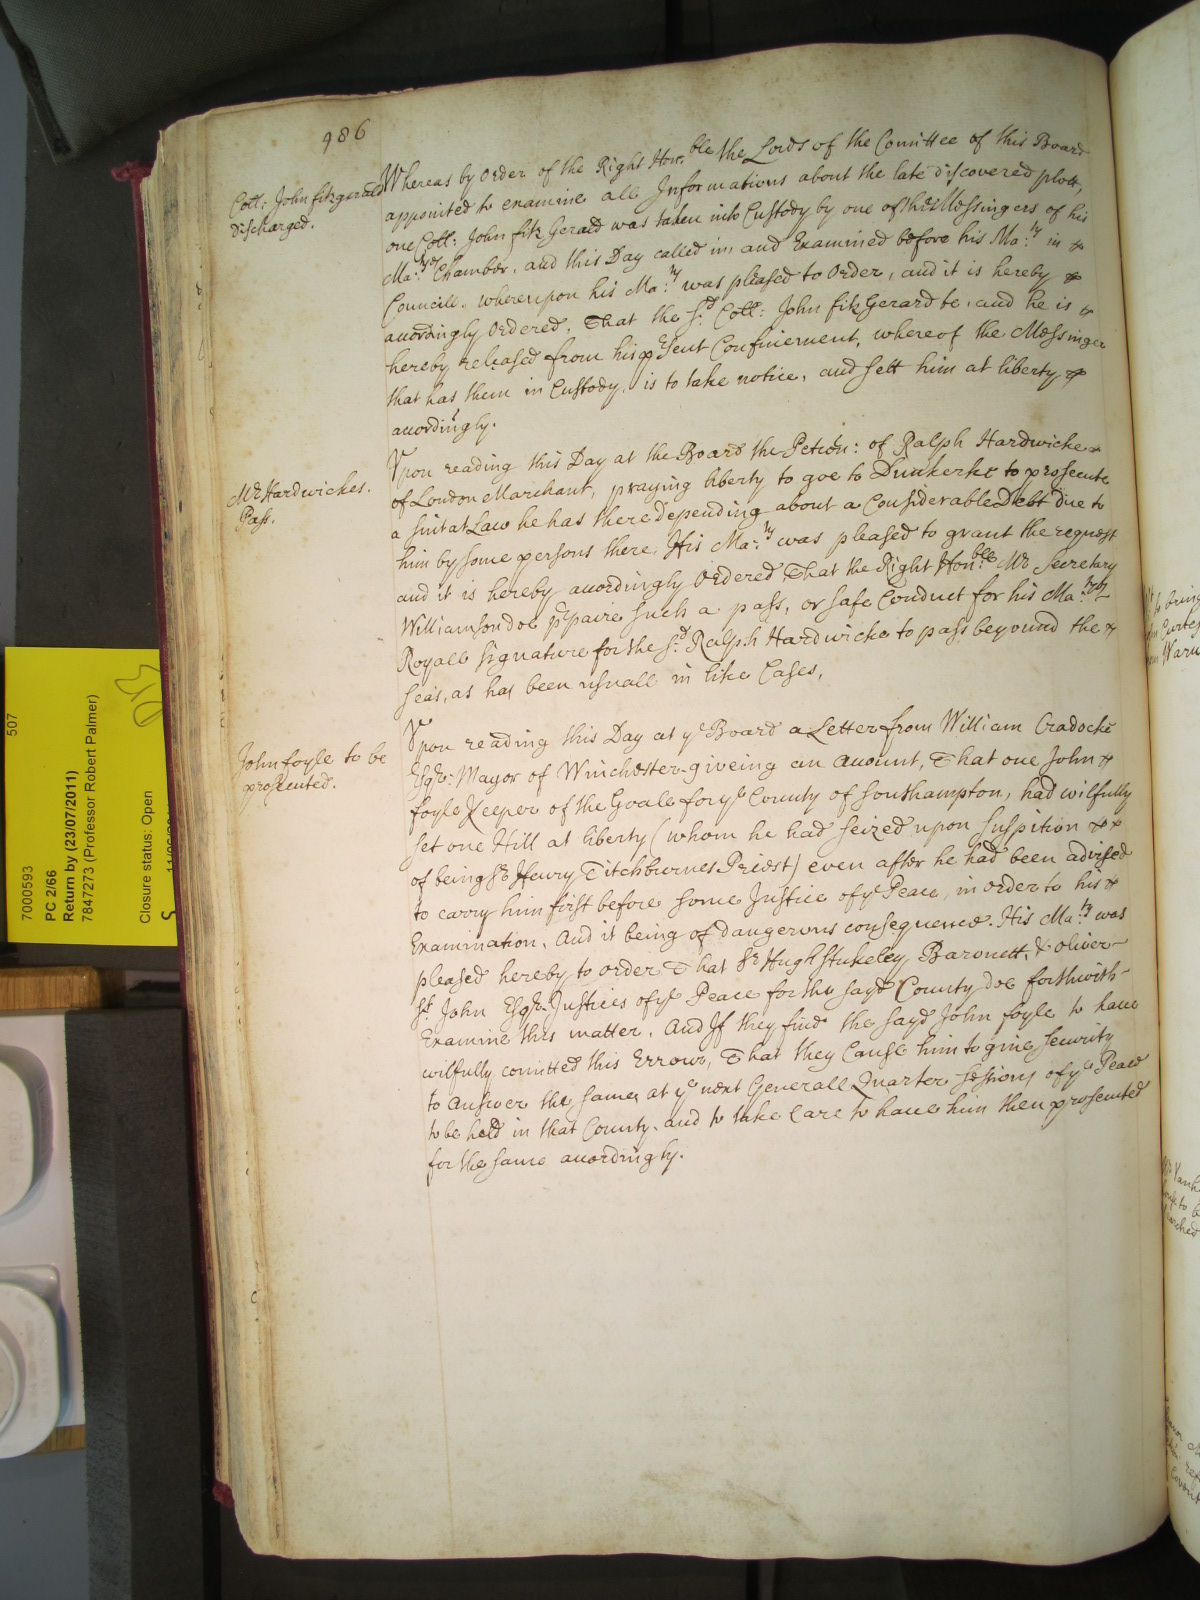 486
Coll: John fitzgerald
discharged.
Whereas by Order of the Right Hon:ble the Lords of the Comittee of this Board
appointed to examine all Informations about the late discovered plott,
one Coll: John fitz Gerald was taken into Custody by one of the Messingers of his
Ma:tys Chamber, and this Day called in, and Examined before his Ma:ty in
Councill. whereupon his Ma:ty was pleased to Order, and it is hereby
accordingly Ordered, That the s:d Coll: John fitz Gerard be, and he is
hereby released from his p̄sent Confinement, whereof the Messinger
that has them in Custody, is to take notice, and sett him at liberty
accordingly.
Mr Hardwickes.
Pass.
Vpon reading this Day at the Board the Petic̄on: of Ralph Hardwicke
of London Marchant, praying liberty to goe to Dunkerke to prosecute
a suit at Law he has there Depending about a Considerable Debt due to
him by some persons there. His Ma:ty was pleased to grant the request
and it is hereby accordingly Ordered That the Right Hon:ble Mr Secretary
Williamson doe p̄paire such a pass, or safe Conduct for his Ma:tys
Royall signature for the s:d Ralph Hardwicke to pass beyound the
seas, as has been usuall in like Cases.
John foyle to be
prosecuted.
Vpon reading this Day at ye Board a Letter from William Cradocke
Esqr: Mayor of Winchester giveing an Account, That one John
foyle Keeper of the Goale for ye County of Southampton, had wilfully
set one Hill at liberty (whom he had seized upon suspition
of being Sr Henry Titchburnes Priest) even after he had been advised
to carry him first before some Justice of ye Peace, in order to his
Examination. And it being of dangerous consequence. His Ma:ty was
pleased hereby to order That Sr Hugh Stukeley Baronett, & Oliver
St John Esqr Justices of ye Peace for the sayd County doe forthwith
Examine this matter. And If they find the sayd John foyle to have
wilfully comitted this Errour, That they Cause him to give security
to Answer the same, at ye next Generall Quarter Sessions of ye Peace
to be held in that County, and to take Care to have him then prosecuted
for the same accordingly.
507
7000593
PC 2/66
Return by (23/07/2011)
7847273 (Professor Robert Palmer)
Closure status: Open